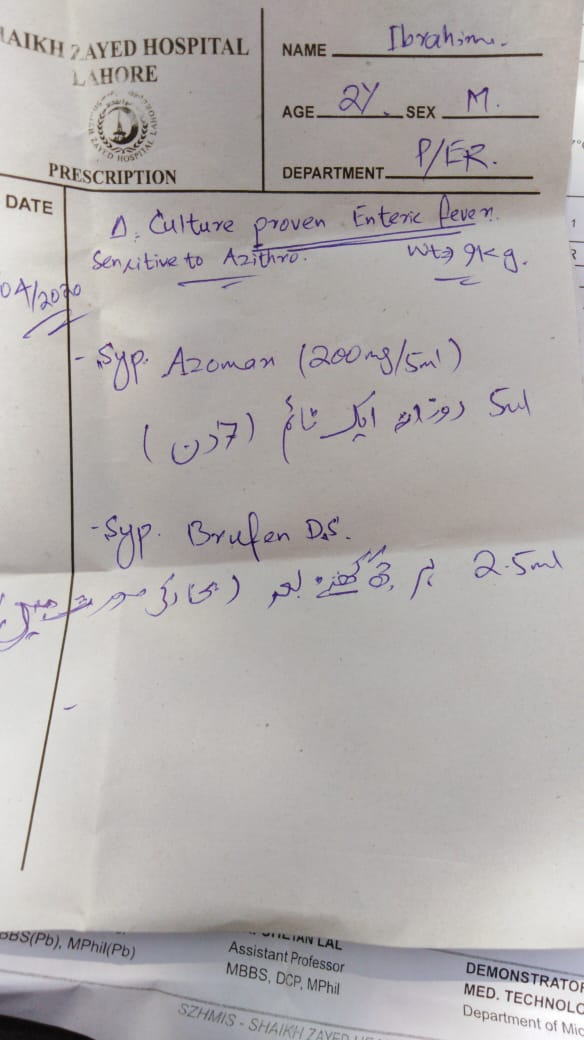 AIKH ZAYED HOSPITAL
LAHORE
PRESCRIPTION
NAME Ibrahim.
AGE 2Y. SEX M.
DEPARTMENT P/ER.
DATE
04/2020
Δ. Culture proven Enteric fever.
Sensitive to Azithro. Wt→ 9kg.
- Syp. Azomax (200mg/5ml)
5ml روزانہ ایک ٹائم (7 دن)
- Syp. Brufen D.S.
2.5ml ہر گھنٹے بعد (بخار کی صورت میں
BBS(Pb), MPhil(Pb)
LAL
Assistant Professor
MBBS, DCP, MPhil
SZHMIS - SHAIKH ZAYED
DEMONSTRATOR
MED. TECHNOLO
Department of Mic